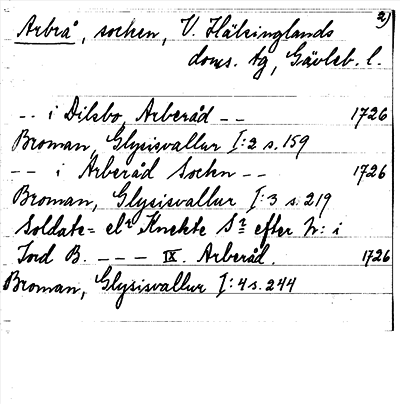 2)
Arbrå, socken, V. Hälsinglands
doms. tg, Gävleb. l.
-- i Dilsbo, Arberåd -- 1726
Broman, Glysisvallur I:2 s. 159
-- i Arberåd Sockn -- 1726
Broman, Glysisvallur I:3 s. 219
Soldate= elr Knekte Sr efter Nr: i
Jord B. --- IX. Arberåd. 1726
Broman, Glysisvallur I:4 s. 244